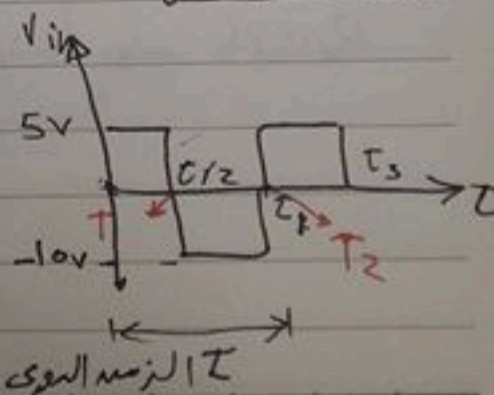 Vin
5V
τ/2
τ3
τ
T
T2
-10V
τ الزمن الدوري